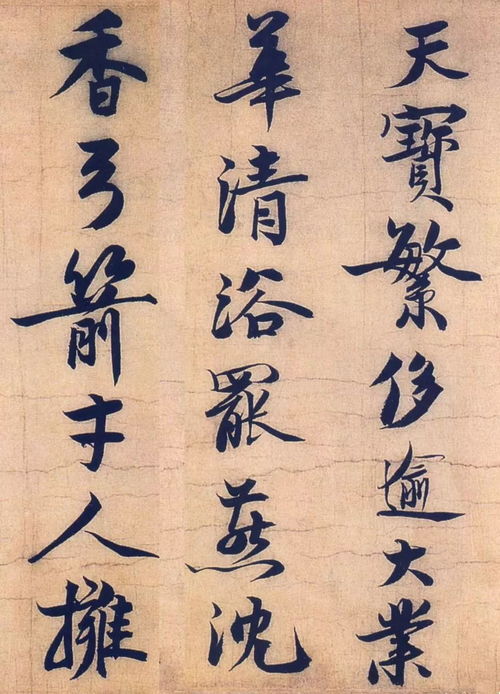 天寶繁侈逾大業
華清浴罷燕沈
香弓箭才人擁